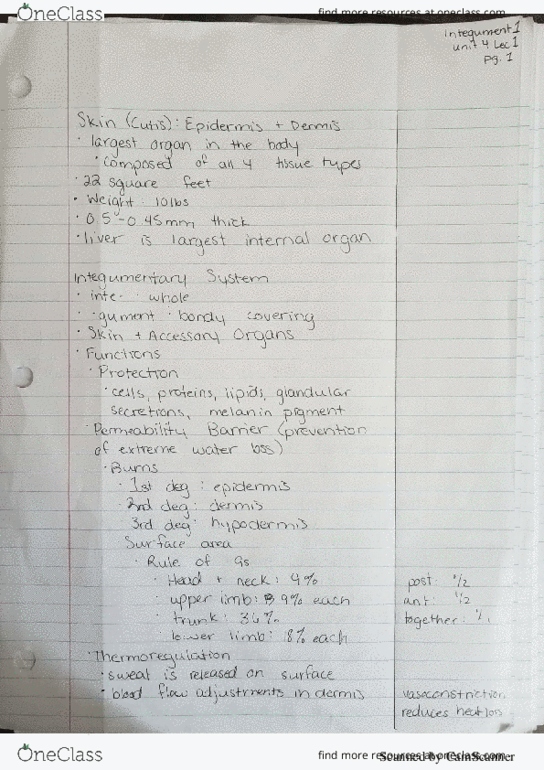 OneClass
find more resources at oneclass.com
Integument 1
unit 4 Lec 1
pg. 1
Skin (Cutis): Epidermis + Dermis
· largest organ in the body
· composed of all 4 tissue types
· 22 square feet
· Weight: 10 lbs
· 0.5-0.45mm thick
· liver is largest internal organ
Integumentary System
· inte- : whole
· -gument : bondy covering
· Skin + Accessory Organs
· Functions
· Protection
· cells, proteins, lipids, glandular
secretions, melanin pigment
· Permeability Barrier (prevention
of extreme water loss)
· Burns
· 1st deg : epidermis
· 2nd deg : dermis
3rd deg : hypodermis
Surface area
· Rule of 9s
· Head + neck: 9%
post: 1/2
· upper limb: 9% each
ant: 1/2
· trunk: 36%
together:
· lower limb: 18% each
· Thermoregulation
· sweat is released on surface
· blood flow adjustments in dermis
vasoconstriction
reduces heat loss
OneClass
find more resources at oneclass.com
Scanned by CamScanner